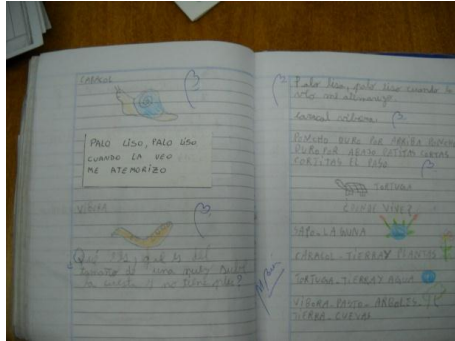 CARACOL
PALO LISO, PALO LISO
CUANDO LA VEO
ME ATEMORIZO
VIBORA
¿Qué es, qué es del
tamaño de una nuez
la cuesta y no tiene pies?
Palo liso, palo liso cuando la
veo me atemorizo.
caracol vibora
DURO POR ARRIBA
DURO POR ABAJO
CORTITAS EL PASO
TORTUGA
¿DONDE VIVE?
SAPO - LAGUNA
CARACOL - TIERRA Y PLANTAS
TORTUGA - TIERRA Y AGUA
VIBORA - PASTO - ARBOLES -
TIERRA - CUEVAS